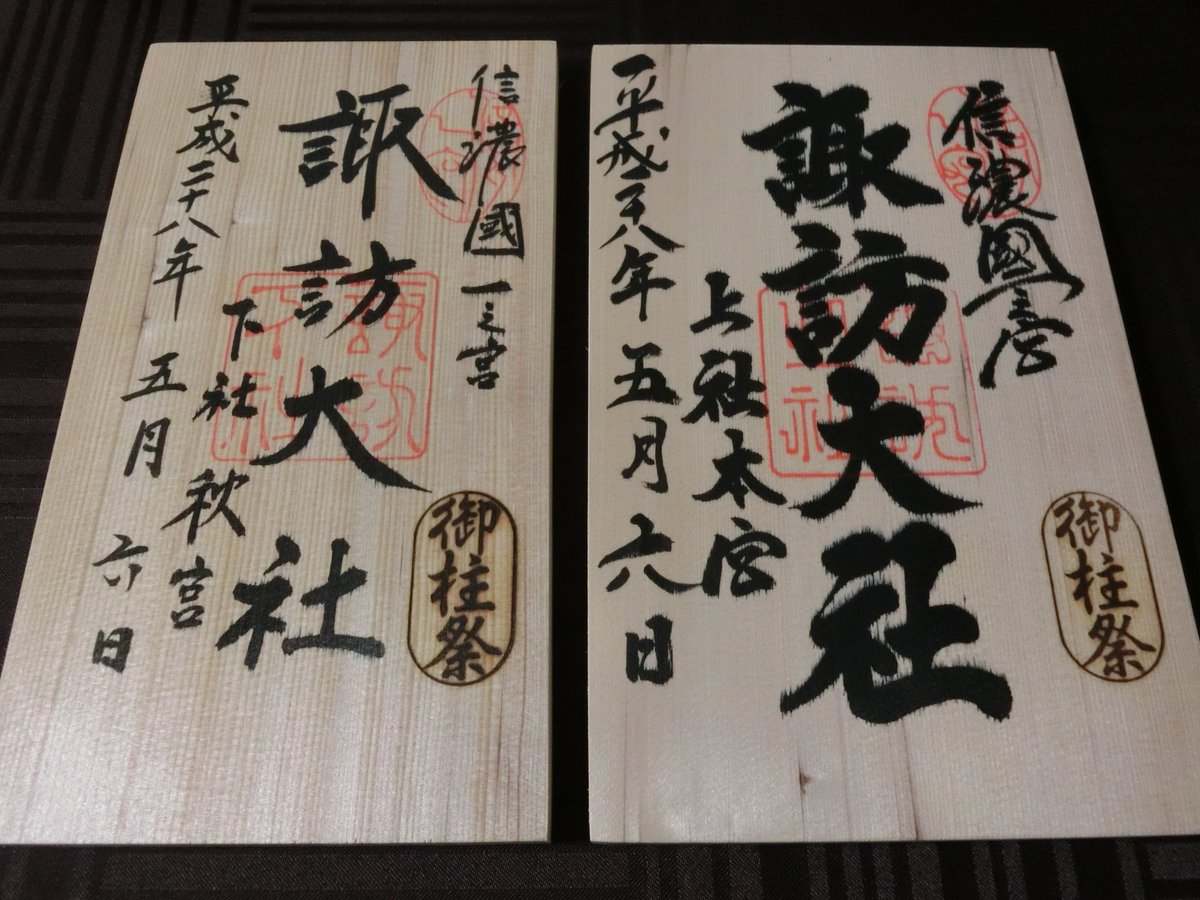 信濃國一之宮
諏訪大社
上社本宮
平成二十八年五月六日
御柱祭
諏訪大社
信濃國一之宮
諏訪大社
下社秋宮
平成二十八年五月六日
御柱祭
諏訪下社